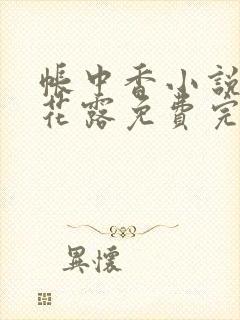 帳中香小說
花露免費完
異懷